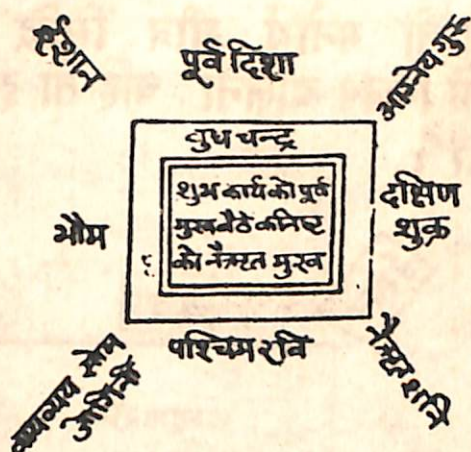 ईशान
पूर्व दिशा
आग्नेय गुरु
बुध चन्द्र
शुभ कार्य को पूर्व
मुख बैठे कनिष्ट
को नैऋत मुख
भौम
दक्षिण
शुक्र
पश्चिम रवि
नैऋत शनि
वायव्यय कोण
जोगिनी